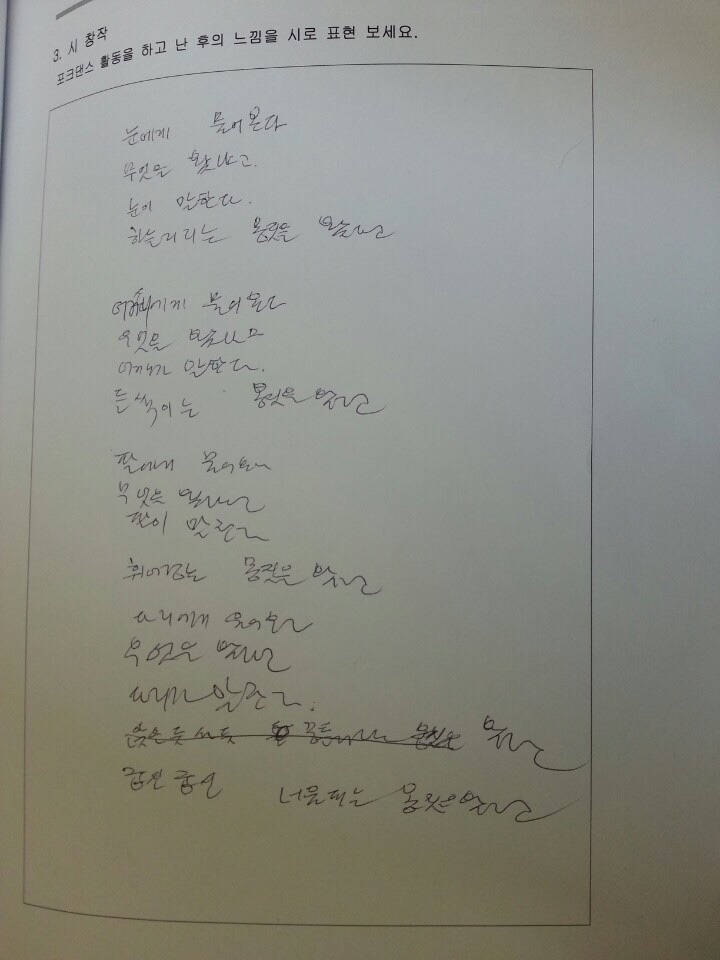 3. 시 창작
포크댄스 활동을 하고 난 후의 느낌을 시로 표현 보세요.
눈에게 물어본다
무엇을 봤냐고.
눈이 말한다.
몸짓을 봤냐고
어깨에게 물어본다
무엇을 봤냐고
어깨가 말한다.
들썩이는 몸짓을 봤냐고
팔에게 물어본다
무엇을 봤냐고
팔이 말한다
휘어감는 몸짓을 봤냐고
다리에게 물어본다
무엇을 봤냐고
다리가 말한다.
앉은 듯 선 듯 봤냐고
몸짓을 봤냐고